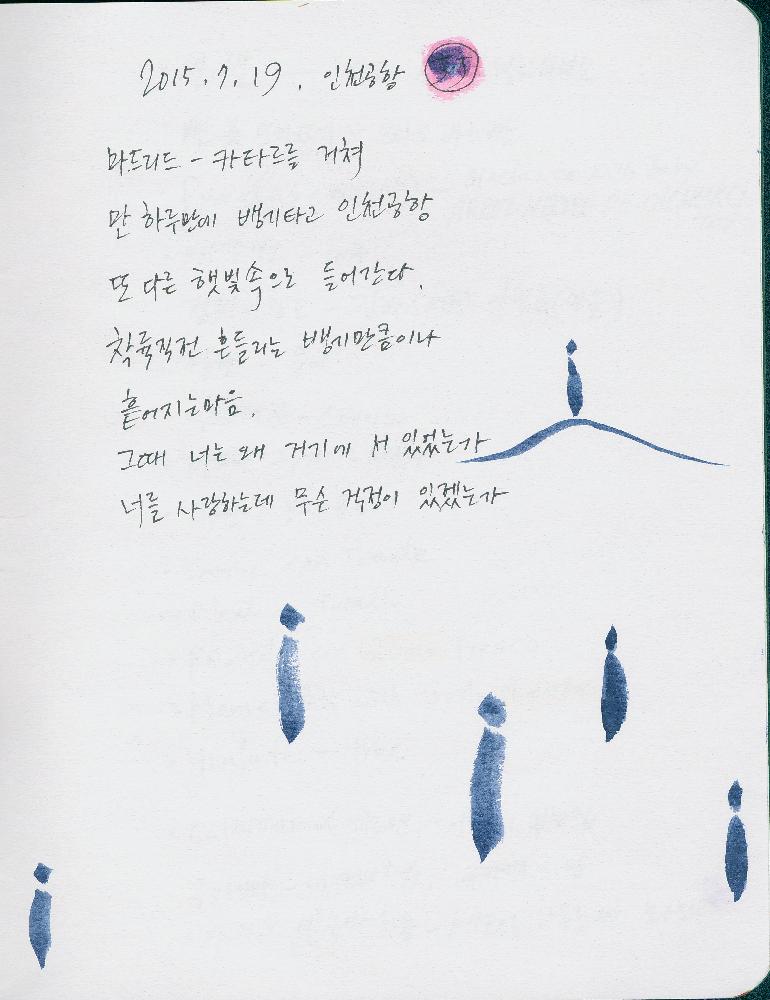 2015.7.19. 인천공항
마드리드 - 카타르를 거쳐
만 하루만에 뱅기타고 인천공항
또 다른 햇빛속으로 들어간다.
착륙직전 흔들리는 뱅기만큼이나
흩어지는마음.
그때 너는 왜 거기에 서 있었는가
너를 사랑하는데 무슨 걱정이 있겠는가